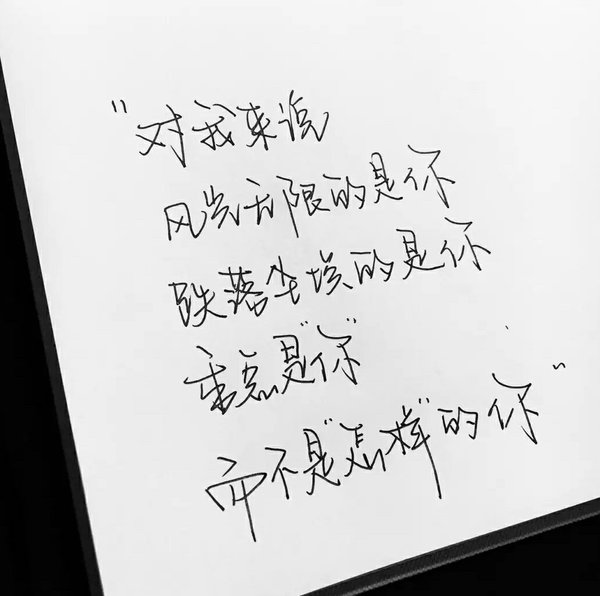 “对我来说
风光无限的是你
跌落尘埃的是你
重点是“你”
而不是“怎样”的你”